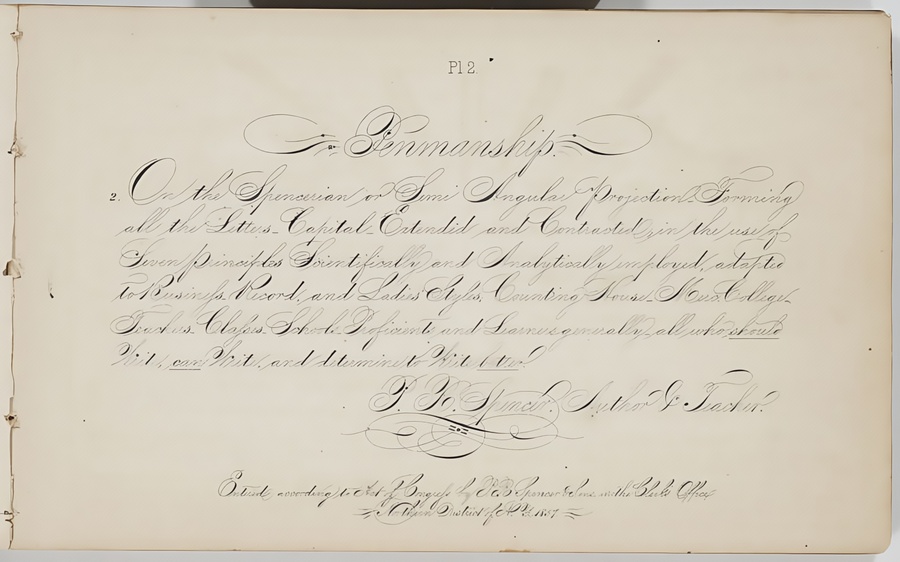 Pl 2.
Penmanship.
2. On the Spencerian or Semi Angular Projection. Forming
all the Letters_ Capital_ Extended and Contracted, in the use of
Seven principles Scientifically and Analytically employed, adapted
to Business, Record, and Ladies' Styles, Counting House_ Mer. College_
Teachers_ Classes_ Schools_ Proficients and Learners generally, all who should
Write, can Write, and determine to Write better.
P. R. Spencer, Author & Teacher.
Entered according to Act of Congress by P. R. Spencer & Sons in the Clerk's Office
Northern District of 1857